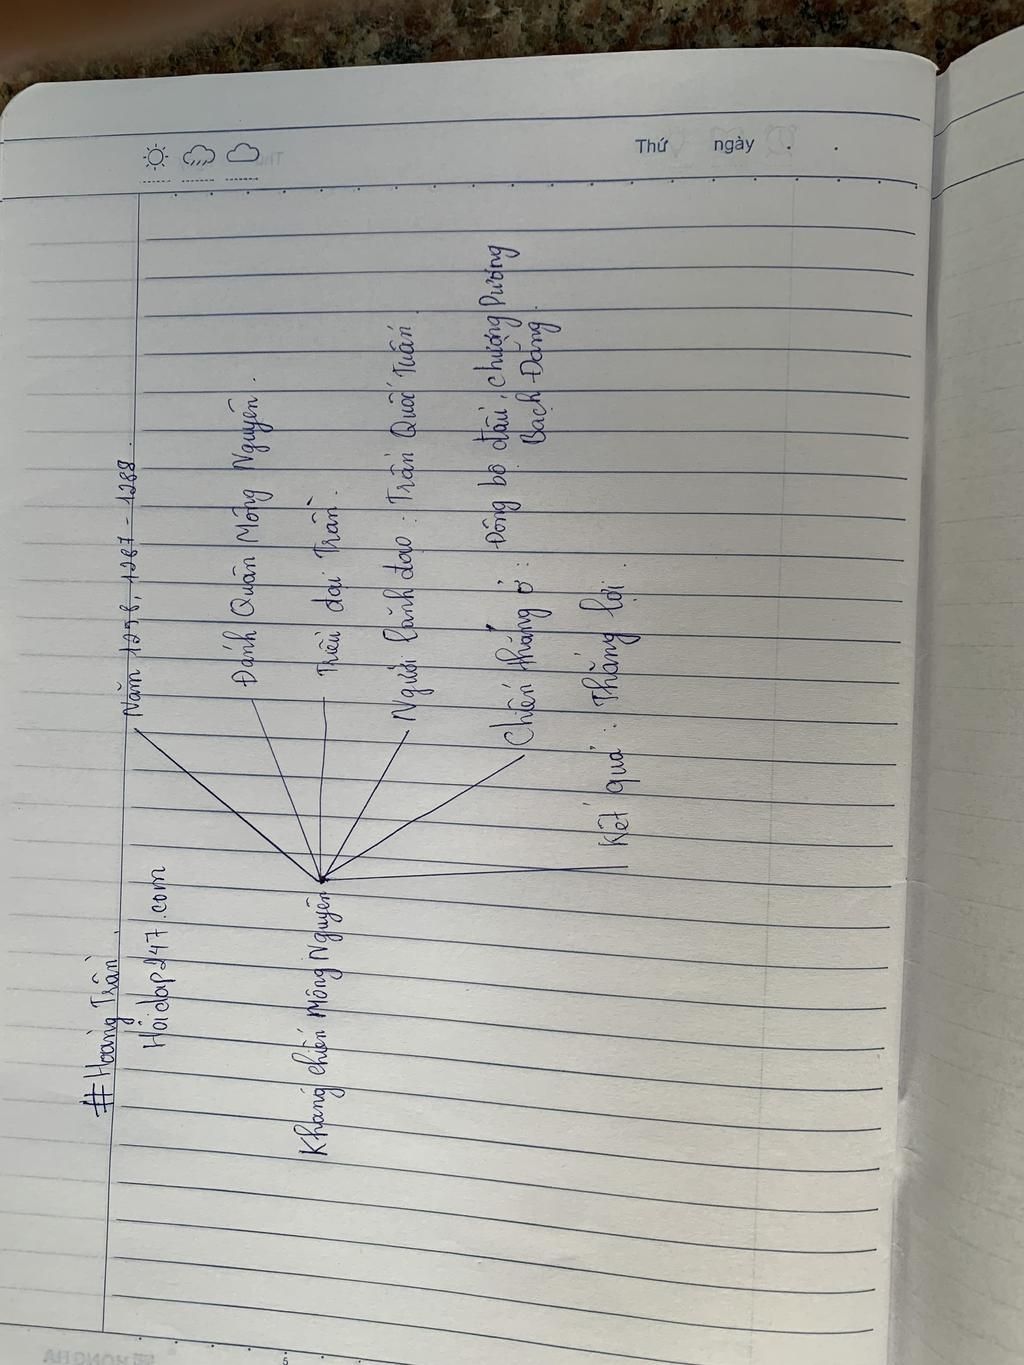 Thứ ngày
#Hoàng Trần
Hỏidap247.com
Kháng chiến Mông Nguyên
Năm 1258, 1287 - 1288.
Đánh Quân Mông Nguyên.
Triều đại Trần.
Người lãnh đạo: Trần Quốc Tuấn
Chiến thắng ở: Đông bộ đầu, Chương Dương
Bạch Đằng.
Kết quả: Thắng lợi.
5